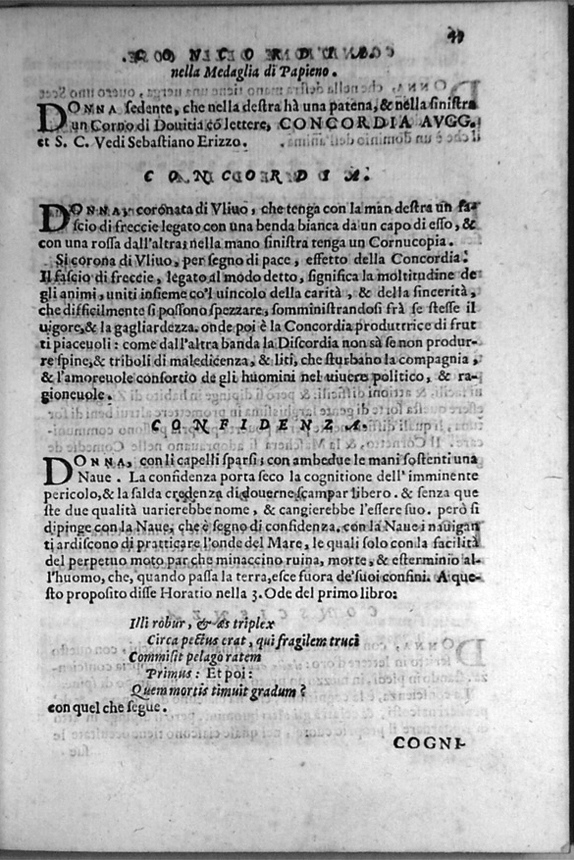 CONCORDIA
nella Medaglia di Papieno.
DONNA sedente, che nella destra hà una patena, & nella sinistra
un Corno di Douitia cõ lettere, CONCORDIA AVGG.
et S. C. Vedi Sebastiano Erizzo.
CONCORDIA.
DONNA, coronata di Vliuo, che tenga con la man destra un fa-
scio di freccie legato con una benda bianca da un capo di esso, &
con una rossa dall'altra; nella mano sinistra tenga un Cornucopia.
Si corona di Vliuo, per segno di pace, effetto della Concordia:
Il fascio di freccie, legato al modo detto, significa la moltitudine de
gli animi, uniti insieme co'l uincolo della carità, & della sincerità,
che difficilmente si possono spezzare, somministrandosi frà se stesse il
uigore, & la gagliardezza. onde poi è la Concordia produttrice di frut
ti piaceuoli: come dall'altra banda la Discordia non sà se non produr-
re spine, & triboli di maledicenza, & liti, che sturbano la compagnia,
& l'amoreuole consortio de gli huomini nel uiuere politico, & ra-
gioneuole.
CONFIDENZA.
DONNA, con li capelli sparsi; con ambedue le mani sostenti una
Naue. La confidenza porta seco la cognitione dell'imminente
pericolo, & la salda credenza di douerne scampar libero. & senza que
ste due qualità uarierebbe nome, & cangierebbe l'essere suo. però si
dipinge con la Naue, che è segno di confidenza. con la Naue i nauigan
ti ardiscono di pratticare l'onde del Mare, le quali solo con la facilità
del perpetuo moto par che minaccino ruina, morte, & esterminio al-
l'huomo, che, quando passa la terra, esce fuora de'suoi confini. A que-
sto proposito disse Horatio nella 3. Ode del primo libro:
Illi robur, & æs triplex
Circa pectus erat, qui fragilem truci
Commisit pelago ratem
Primus: Et poi:
Quem mortis timuit gradum?
con quel che segue.
COGNI-